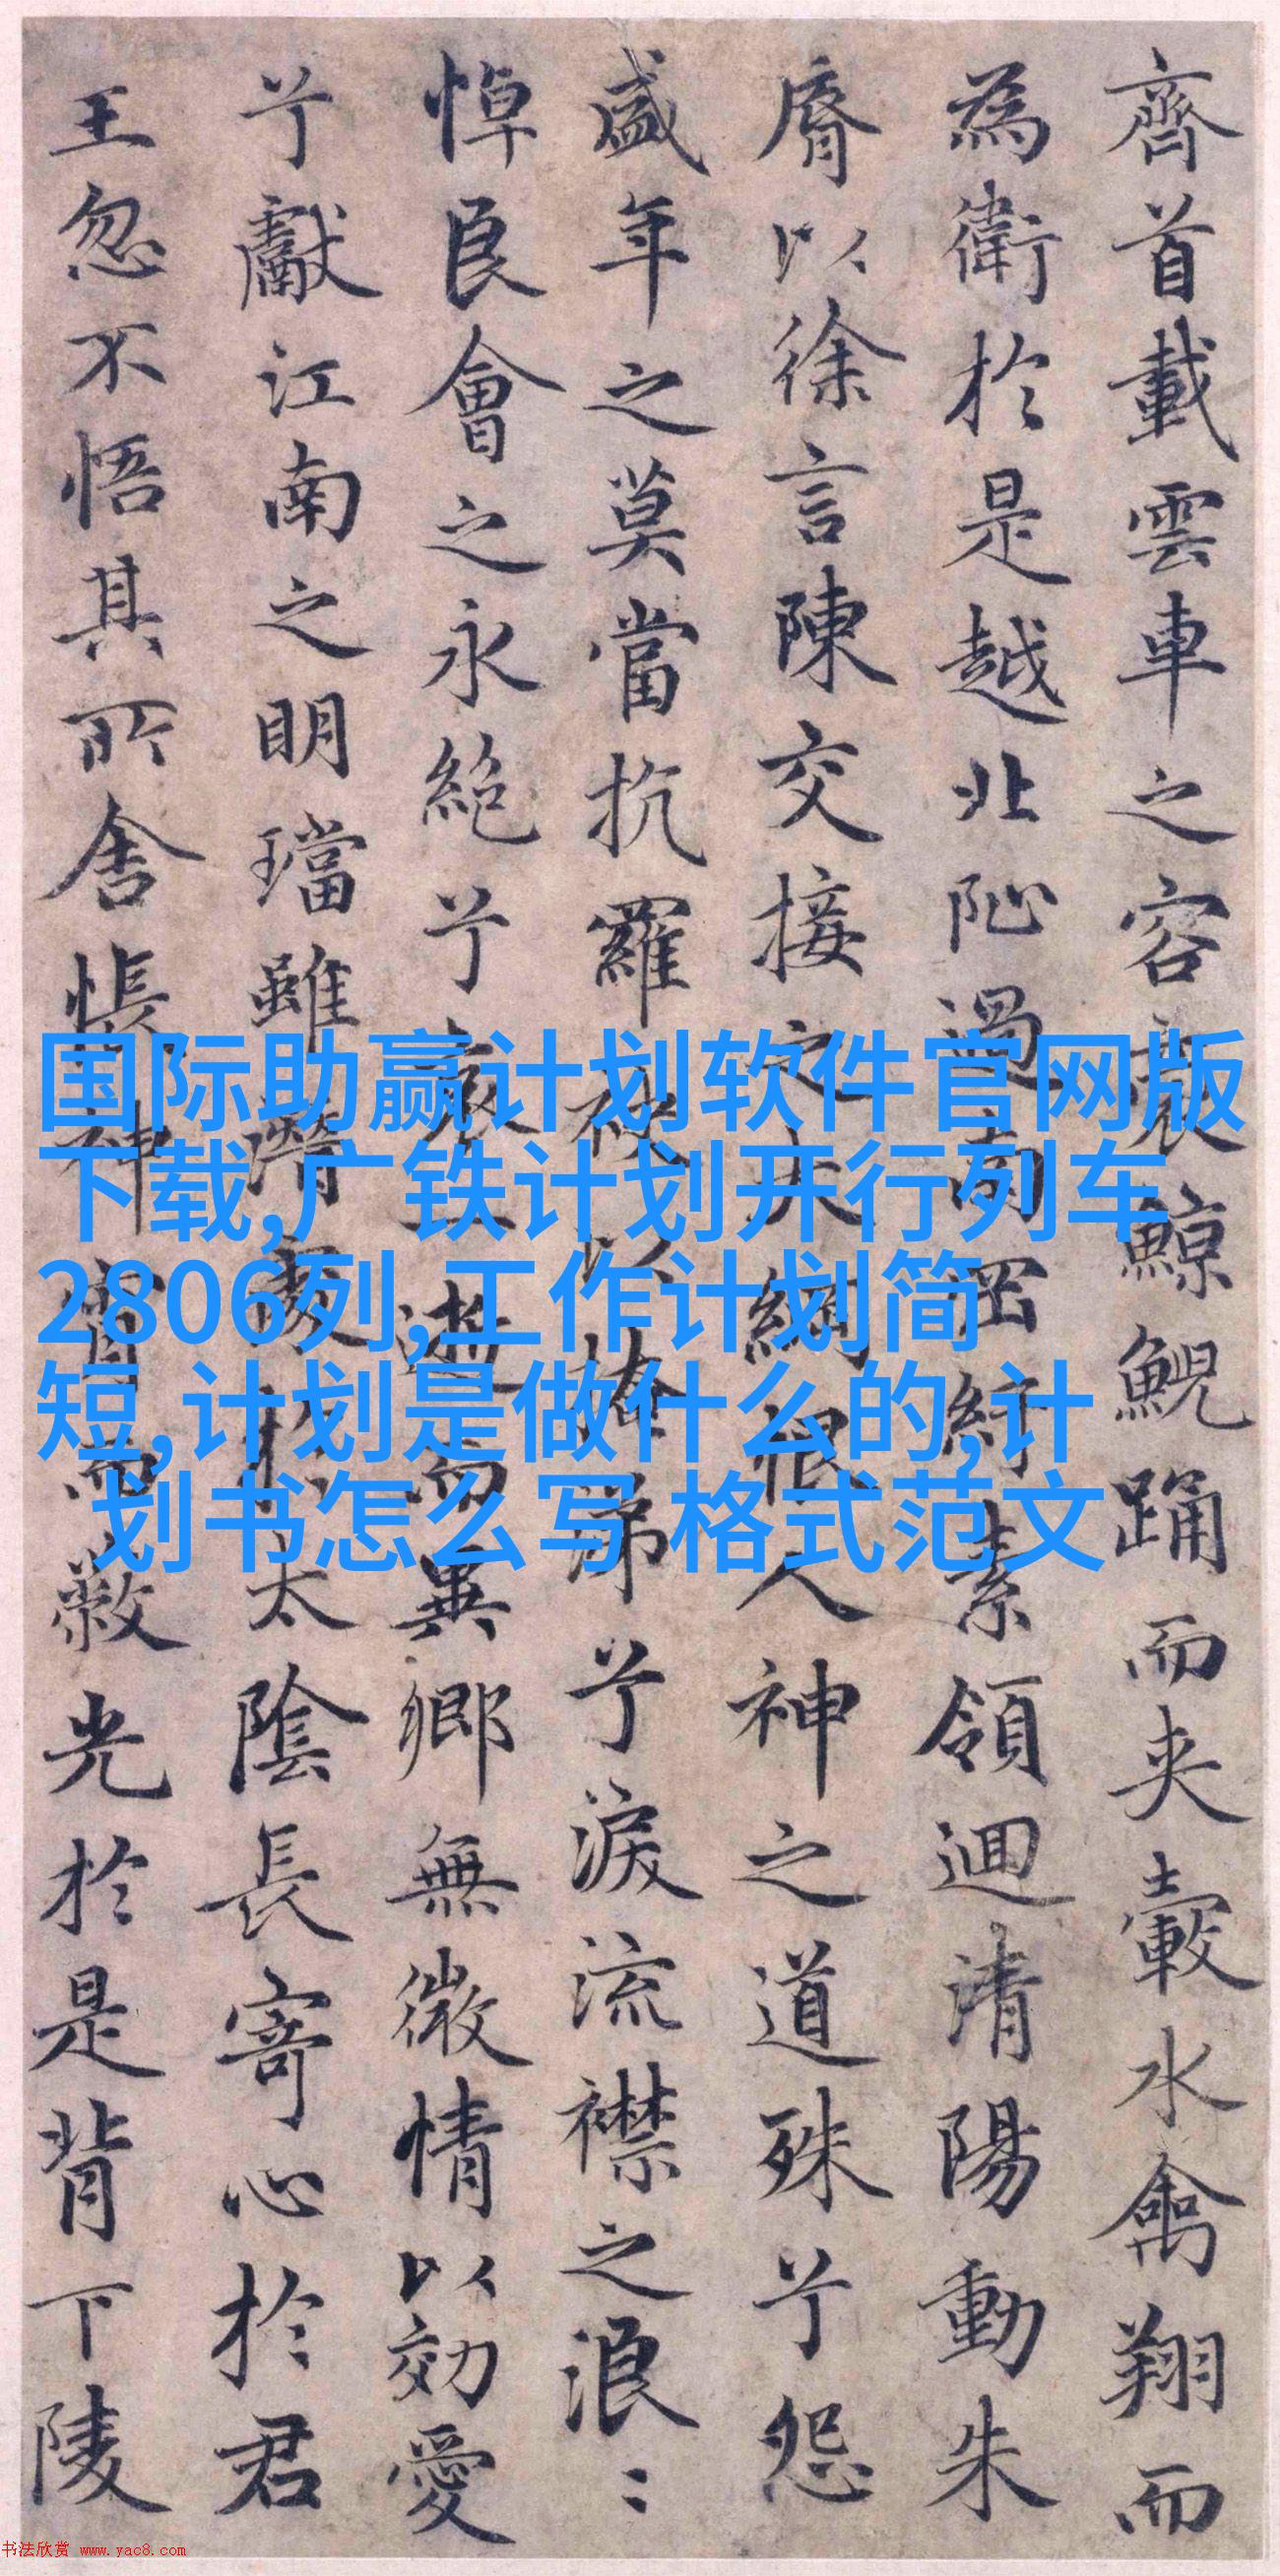 齊首載雲車之容裔鯨鯢踊而夾轂水禽翔而
為衛於是越北沚過南岡紆素領迴清陽動朱
脣以徐言陳交接之大綱恨人神之道殊兮怨
盛年之莫當抗羅袂以掩涕兮淚流襟之浪〻
悼良會之永絕兮哀一逝而異鄉無微情以効愛
兮獻江南之明璫雖潛處於太陰長寄心於君
王忽不悟其所舍悵神宵而蔽光於是背下陵
国际助赢计划软件官网版
下载,广铁计划开行列车
2806列,工作计划简
短,计划是做什么的,计
划书怎么写 格式范文
书法欣赏 www.yac8.com